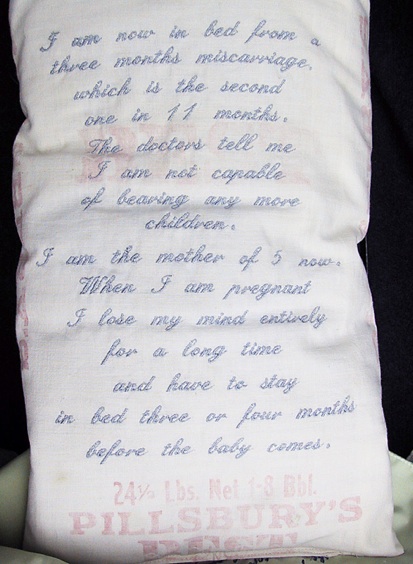 I am now in bed from a
three months miscarriage,
which is the second
one in 11 months.
The doctors tell me
I am not capable
of bearing any more
children.
I am the mother of 5 now.
When I am pregnant
I lose my mind entirely
for a long time
and have to stay
in bed three or four months
before the baby comes.
24½ Lbs. Net 1-8 Bbl.
PILLSBURY'S
BEST